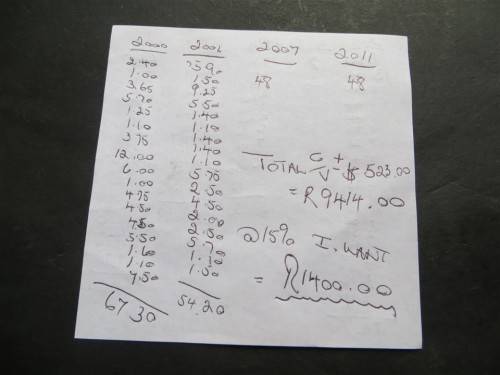 2000 2006 2007 2011
2.40 3.90 48 48
1.00 1.50
3.65 9.25
5.70 5.50
1.25 1.40
1.10 1.10
3.75 1.40
12.00 1.40
6.00 1.10
1.00 5.75
4.75 2.50
4.50 4.50
4.50 2.00
5.50 2.50
1.60 5.70
1.10 1.10
7.50 1.50
67.30 54.20
TOTAL C + V $523.00
= R9414.00
@15% I WANT
= R1400.00